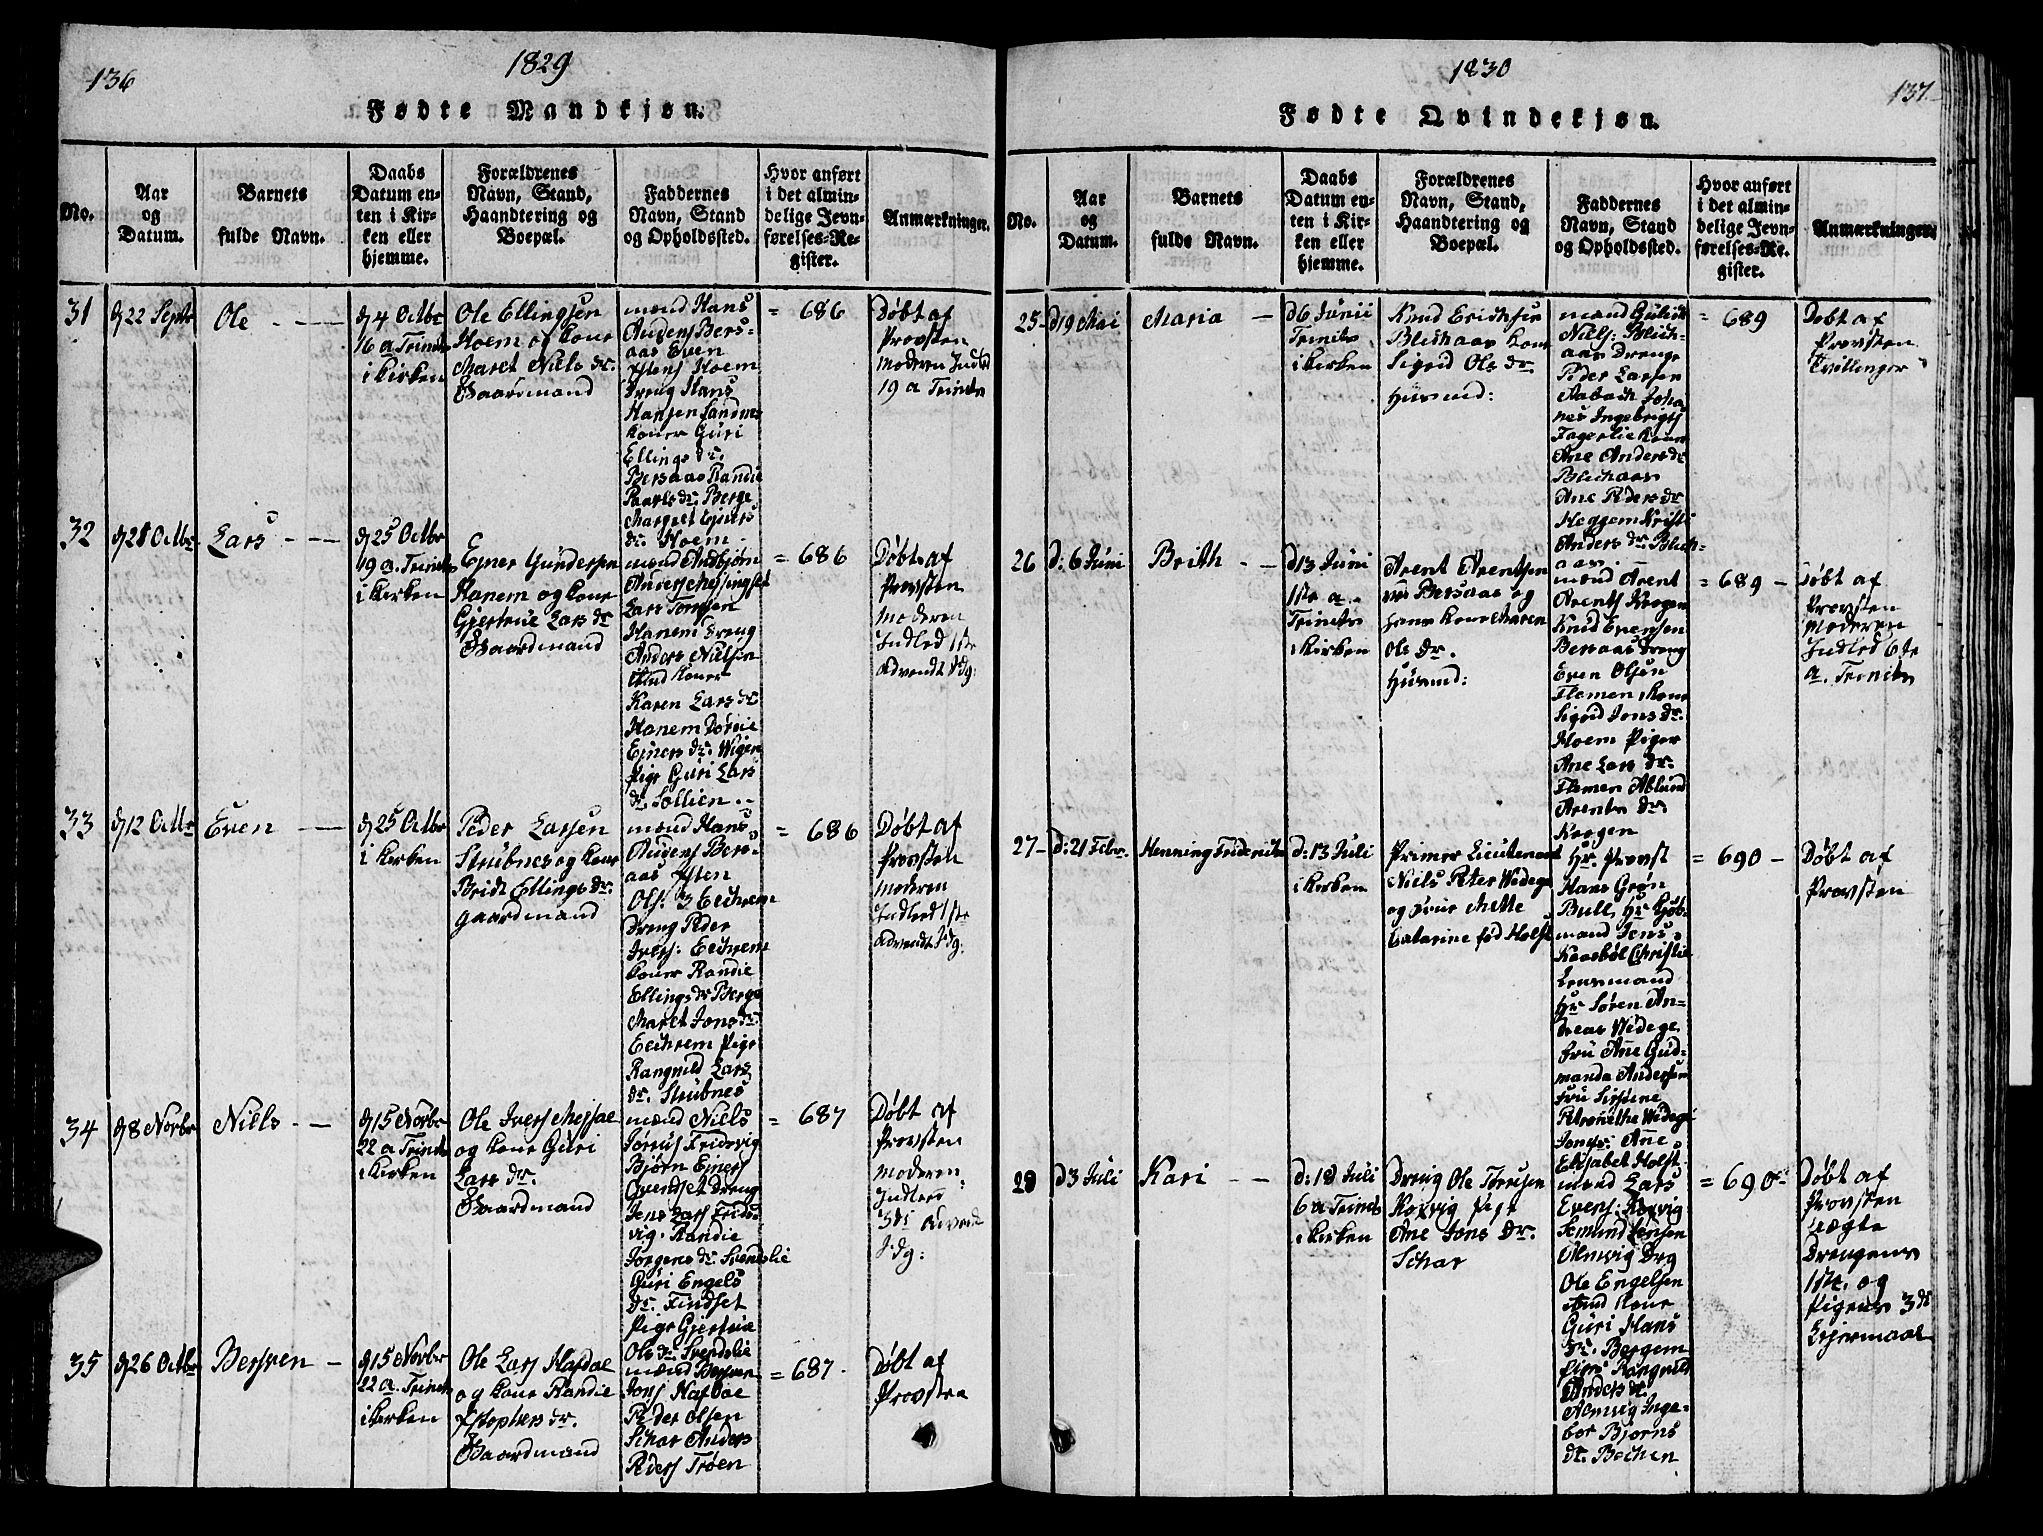 136
1829
Fødte Mandkjøn.
No.
Aar
og
Datum.
Barnets
fulde Navn.
Daabs
Datum en-
ten i Kir-
ken eller
hjemme.
Forældrenes
Navn, Stand,
Haandtering og
Boepæl.
Faddernes
Navn, Stand
og Opholdssted.
Hvor anført
i det almin-
delige Jevn-
førelses-Re-
gister.
Anmærkninger.
31
22 Septr
Ole
4 Octbr
16 a Trinits
i Kirken
Ole Ellingsen
Hoem og kone
Maret Niels dr.
Gaardmand
mænd Hans
Augens Bers-
aas Even
Hoem
Dreng Hans
Hansen Sandnes
koner Guri
Ellings dr.
Bersaas Randie
Paals dr. Berge
Margret Ejners
dr. Hoem
= 686
Døbt af
Provsten
Moderen Indled
19 a Trinits
32
28 Octbr
Lars
25 Octbr
19 a. Trinits
i Kirken
Ejner Gundersen
Hanem og kone
Gjertrue Lars dr
Gaardmand
mænd Andbjørn
Anders Messingset
Lars Tomsen
Hanem Dreng
Anders Nielsen
koner
Karen Lars dr
Hanem Dørdie
Ejners dr. Wigen
Pige Guri Lars
dr. Sollien
= 686
Døbt af
Provsten
Moderen
Indled 1ste
Advendt
33
12 Octbr
Even
25 Octbr
i Kirken
Peder Larsen
Strubnes og kone
Bridt Ellings dr.
Gaardmand
mænd Hans
Augens Bers-
aas
Ols:
Dreng Peder
Ivers: Eechrem
koner Randie
Ellings dr Berge
Maret Jons dr.
Eechrem Pige
Rangnild Lars
dr. Strubnes
= 686
Døbt af
Provsten
Moderen
Indled 1ste
Advendt
34
8 Novbr
Niels
15 Novbr
22 a Trinits
i Kirken
Ole Ivers
og kone Guri
Lars dr.
Gaardmand
mænd Niels
Fridsvig
Bjørn Ejners
Dreng
Jens Lars Frids-
vig. Randie
Jørgens dr. Svendslie
Guri Engels
dr. Findset
Pige Gjertrue
Ols dr. Svendslie
= 687
Døbt af
Provsten
Moderen
Indled
3de Advent
35
26 Octbr
Bersven
15 Novbr
22 a. Trinits
i Kirken
Ole Lars Hafdal
og kone Randie
dr.
Gaardmand
mænd Bersven
Jons Hafdal
Peder Olsen
Schar Anders
Peders Trøen
= 687
Døbt af
Provsten
1830
137
Fødte Qvindekjøn.
No.
Aar
og
Datum.
Barnets
fulde Navn.
Daabs
Datum en-
ten i Kir-
ken eller
hjemme.
Forældrenes
Navn, Stand,
Haandtering og
Boepæl.
Faddernes
Navn, Stand
og Opholdssted.
Hvor anført
i det almin-
delige Jevn-
førelses-Re-
gister.
Anmærkninger.
25
d 19 Mai
Maria
d 6 Junii
Trinits
i Kirken
Knud Erichsen
Blichaas kone
Sigrid Ols dr.
Husmd:
mænd
Niels: Blich-
aas Drenge
Peder Larsen
Johan-
nes Ingebrigts
Fagerlie kone
Ane Anders dr
Blichaas
Ane Peders dr
Heggem Kristi
Anders dr. Blich-
aas.
= 689
Døbt af
Provsten
Tvillinger
26
d: 6 Juni
Brith
d 13 Juni
1ste a.
Trinits
i Kirken
Arent Arentsen
Bersaas og
hans kone Maren
Ols dr.
Husmd:
mænd Arent
Arents Krogen
Knud Evensen
Bersaas Dreng
Even Olsen
Flemen kone
Sigrid Jons dr.
Hoem Piger
Ane Lars dr.
Flemen
Arents dr
Krogen
= 689
Døbt af
Provsten
Moderen
Indled 6te
a. Trinits
27
d: 21 Febr.
Henning Friderica
d: 13 Juli
i Kirken
Primier Lieutenant
Niels Peter Widege
og Frue Mette
Catarine fød Holst
Hr. Provst
Hans Grøn
Bull, Hr Kjøb-
mand Jens
Kaasbøl Christie
Lensmand
Hr Søren An-
dreas Widege
Fru Ane Gud-
manda Andersen
Fru
Petronethe Widege
Jomfr. Ane
Elisabet Holst
= 690
Døbt af
Provsten
28
d 3 Juli
Kari
d: 18 Juli
6 a Trinits
i Kirken
Dreng Ole
Pige
Ane Jons dr.
Schar
mænd Lars
Evens:
Semund Jensen
Almvig Drg
Ole Engelsen
kone
Guri Hans
dr. Bergem
Pige Rangnild
Anders dr.
Almvig Inge-
bor Bjørns
dr. Bechen
= 690
Døbt af
Provsten
uægte
Drengens
1ste og
Pigens 3de
Lejermaal